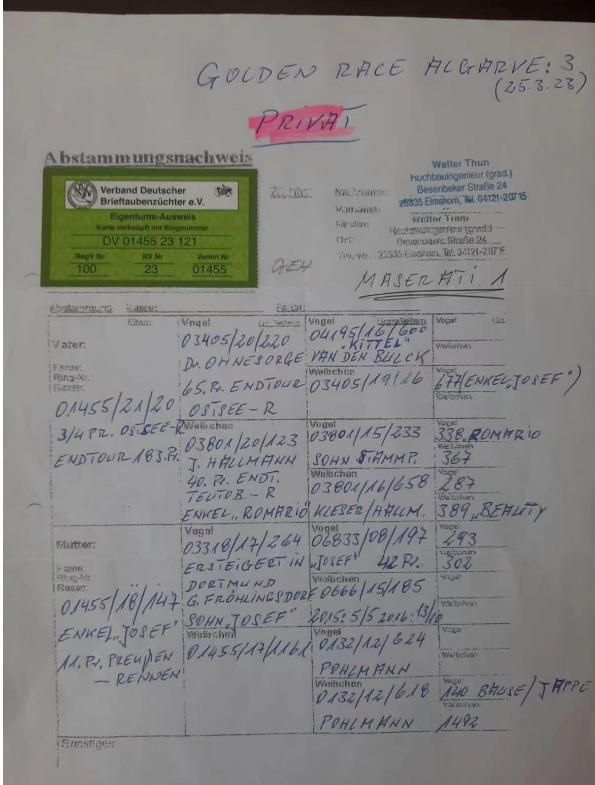 GOLDEN RACE ALGARVE: 3
(25.3.23)
PRIVAT
Abstammungsnachweis
Verband Deutscher
Brieftaubenzüchter e.V.
Eigentums-Ausweis
Karte verknüpft mit Ringnummer
DV 01455 23 121
RegV Nr RV Nr Verein Nr
100 23 01455
Züchter
Walter Thun
Hochbauingenieur (grad.)
Besenbeker Straße 24
25335 Elmshorn, Tel. 04121-20715
Nachname:
Vorname:
Walter Thun
Hochbauingenieur (grad.)
Ort: Besenbeker Straße 24
25335 Elmshorn, Tel. 04121-20715
GEH
MASERATI 1
Abstammung Rasse: Farbe:
Eltern
Vater:
Farbe:
Ring-Nr.:
Rasse:
01455/21/20
3/4 PR. OSTSEE-R
ENDTOUR 183.Pr.
Vogel
03405/20/220
Dr. OHNESORGE
65. Pr. ENDTOUR
OSTSEE-R
Weibchen
03801/20/123
J. HALLMANN
40. Pr. ENDT.
TEUTOB.-R
ENKEL „ROMARIO
Vogel
04195/16/600
"KITTEL"
VAN DEN BULCK
Weibchen
03405/19/26
Vogel
03801/15/233
SOHN STAMMP.
Weibchen
03801/16/658
KLESER/HALLM.
Vogel
Weibchen
Vogel
677(ENKEL „JOSEF")
Weibchen
Vogel
338 „ROMARIO
Weibchen
367
Vogel
287
Weibchen
389 „BEAUTY
Mutter:
Farbe:
Ring-Nr.
Rasse:
01455/18/147
ENKEL „JOSEF"
11. Pr. PREUßEN
– RENNEN
Vogel
03318/17/264
ERSTEIGERT IN
DORTMUND
G. FRÖHLINGSDORF
SOHN „JOSEF"
Weibchen
01455/17/1161
Vogel
06833/08/197
„JOSEF" 42 Pr.
Weibchen
0666/15/185
2015: 5/5 2016: 13/10
Vogel
0132/12/624
POHLMANN
Weibchen
0132/12/618
POHLMANN
Vogel
293
Weibchen
302
Vogel
Weibchen
Vogel
Weibchen
Vogel
140 BAUSE/JAPPE
Weibchen
1492
Sonstiges